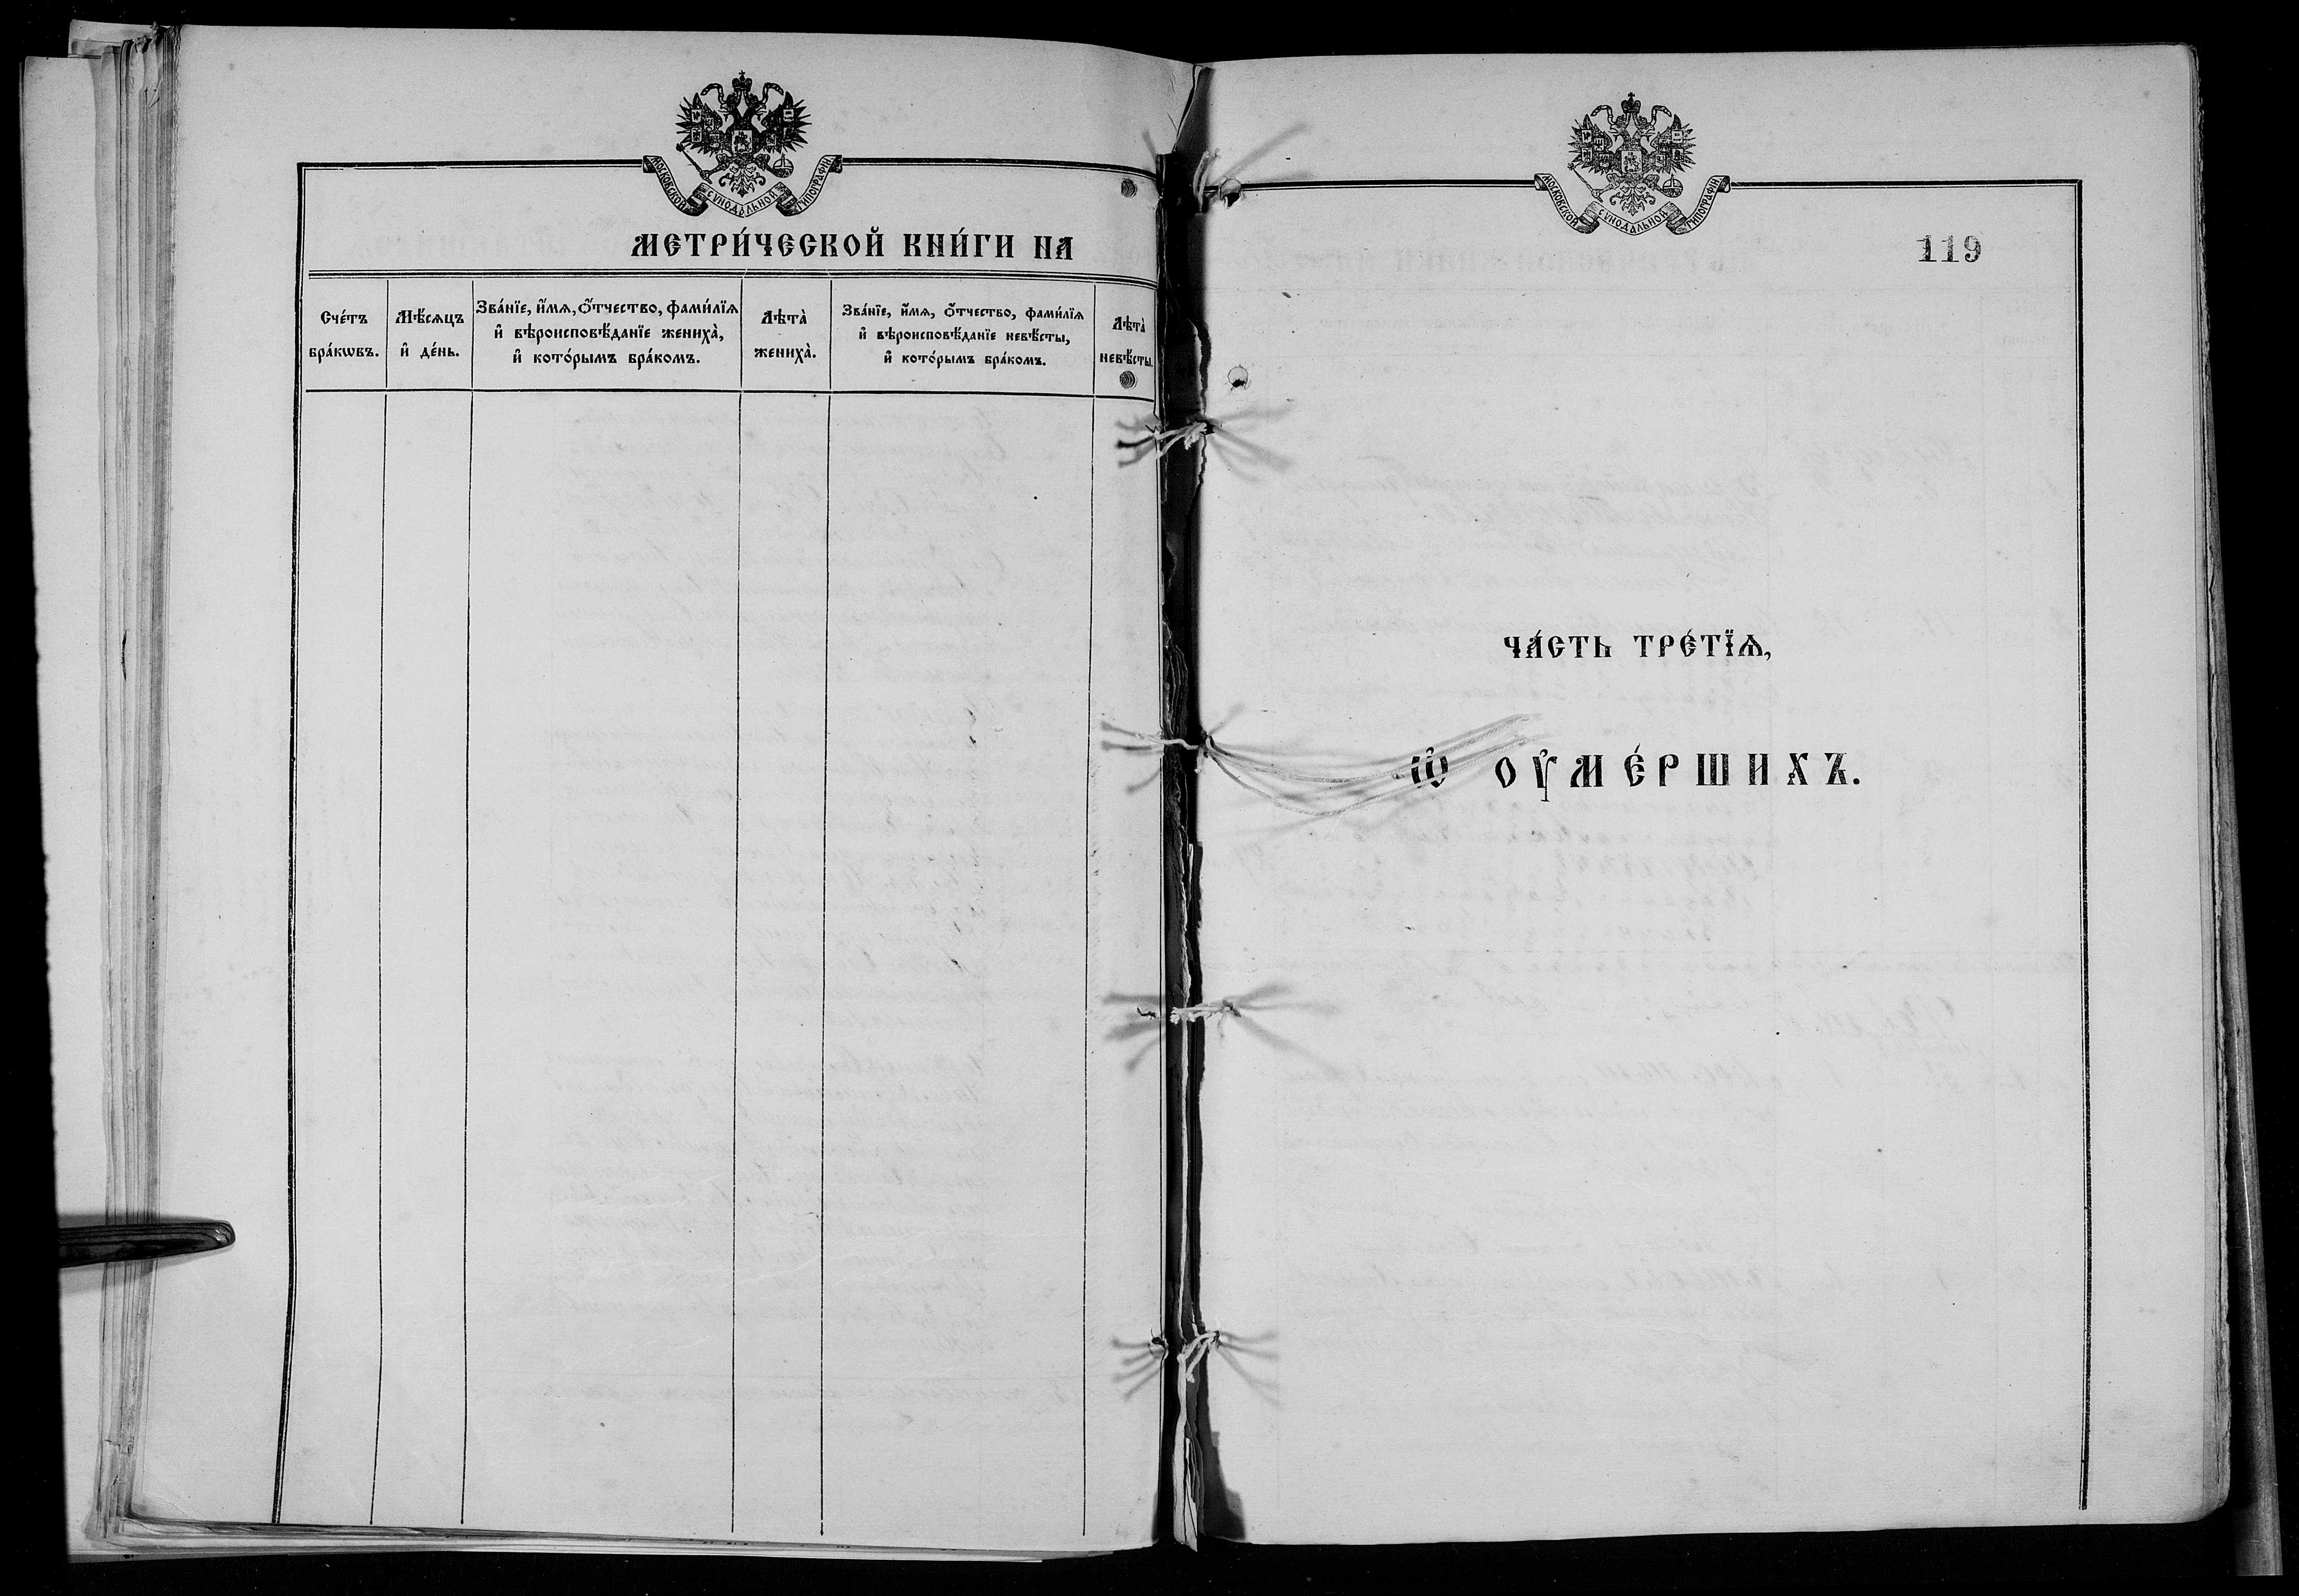 МОСКОВСКОЙ СѴНОДАЛЬНОЙ ТИПОГРАФІИ
МЕТРИ́ЧЕСКОЙ КНИ́ГИ НА
Сче́тъ
бра́кѡвъ.
Мѣ́сяцъ
и҆ де́нь.
Зва́нїе, и҆́мѧ, ѻ҆́тчество, фами́лїѧ
и҆ вѣроисповѣ́данїе жениха̀,
и҆ кото́рымъ бра́комъ.
Лѣта̀
жениха̀.
Зва́нїе, и҆́мѧ, ѻ҆́тчество, фами́лїѧ
и҆ вѣроисповѣ́данїе невѣ́сты,
и҆ кото́рымъ бра́комъ.
Лѣта̀
невѣ́сты.
МОСКОВСКОЙ СѴНОДАЛЬНОЙ ТИПОГРАФІИ
119
ЧА́СТЬ ТРЕ́ТЇѦ,
Ѽ ОУ҆МЕ́РШИХЪ.